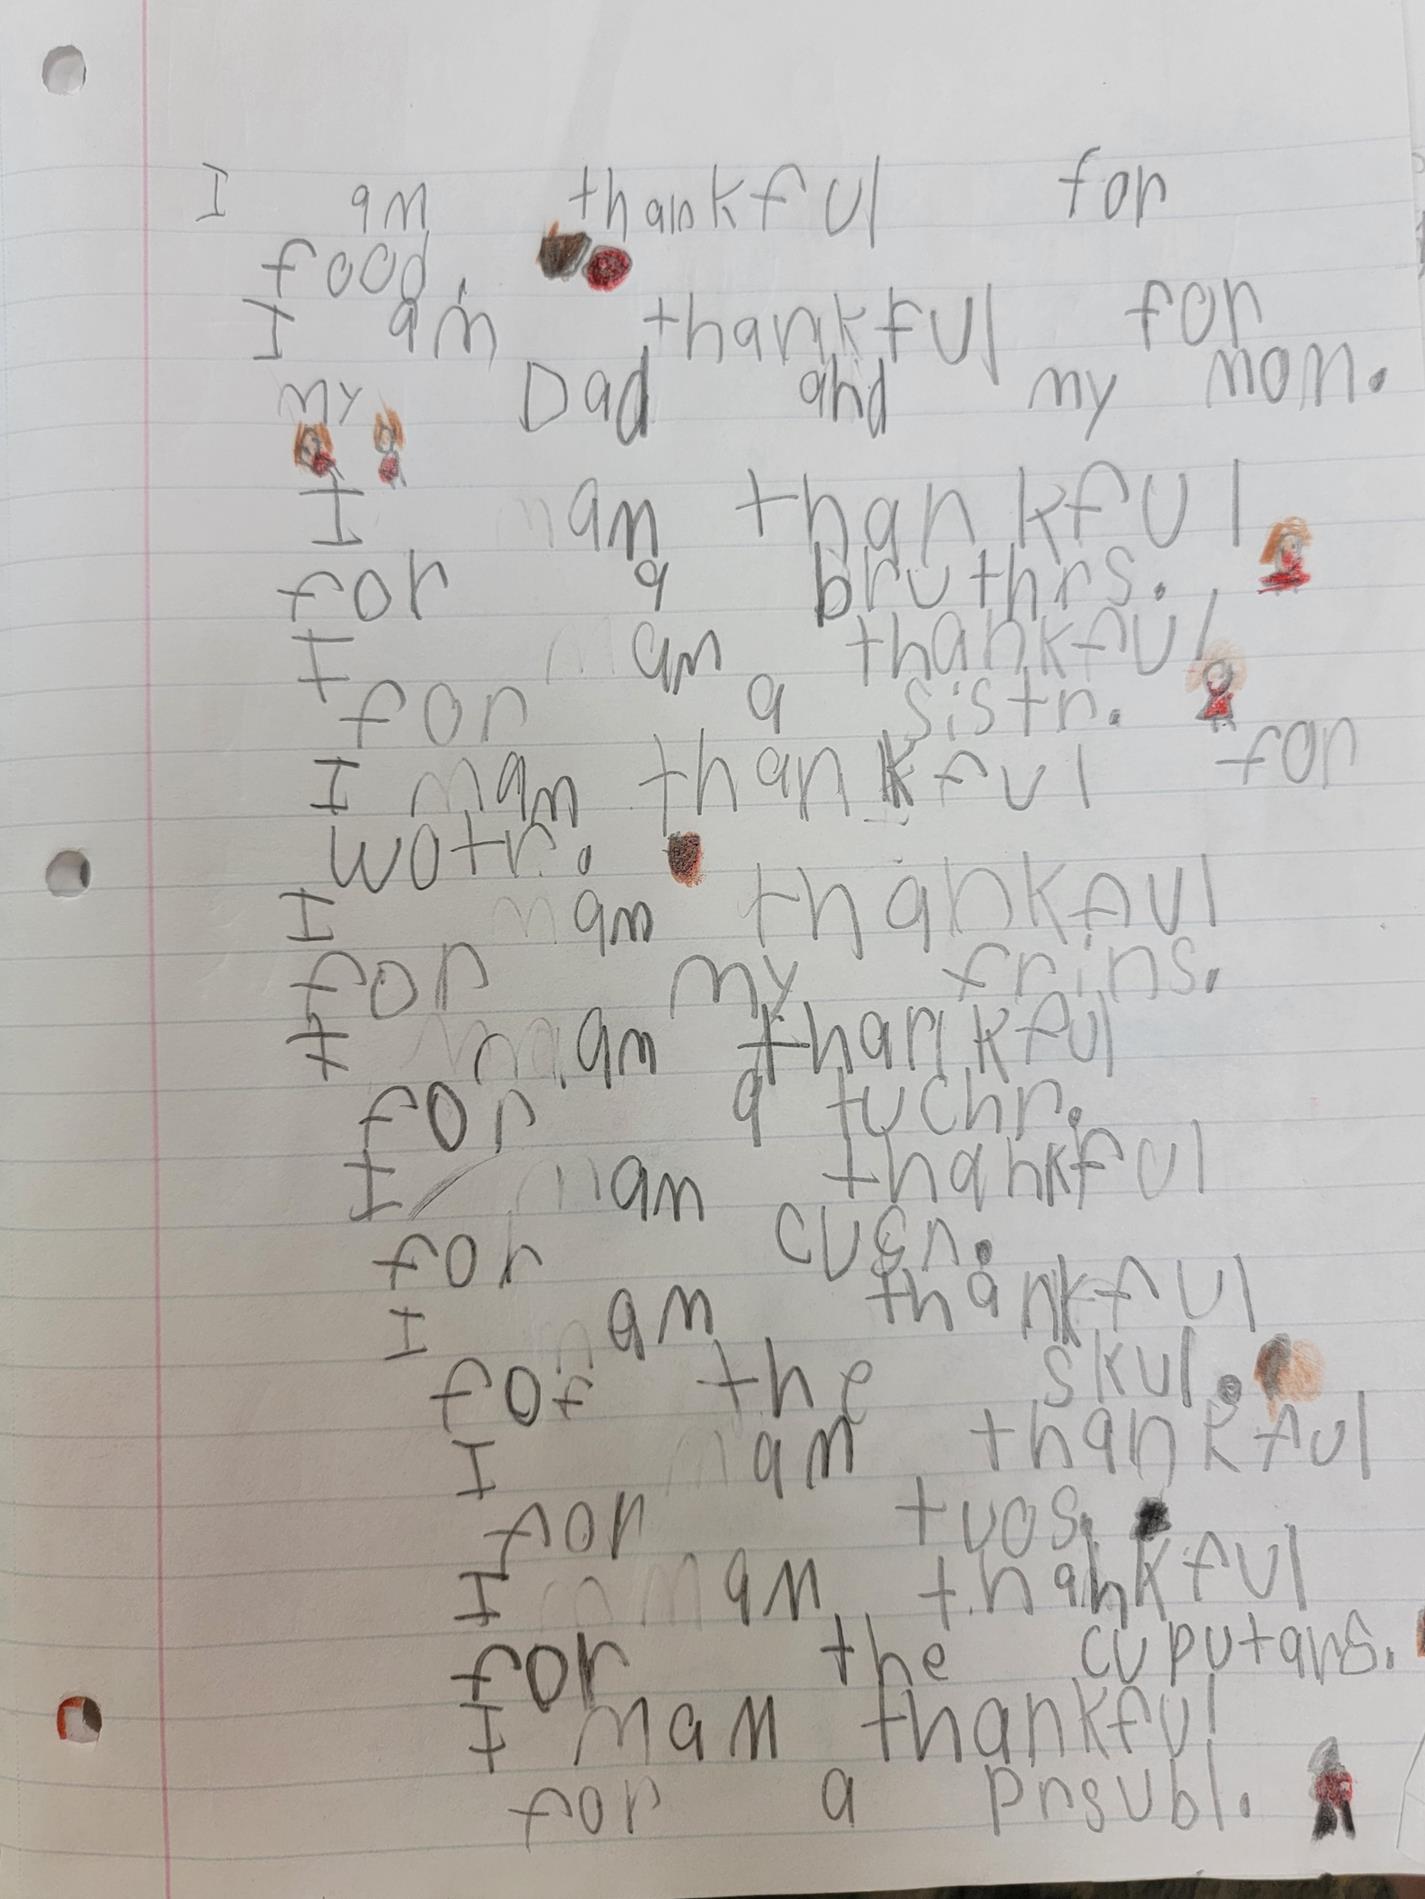 I am thankful for
food.
I am thankful for
my Dad and my mom.
I am thankful
for a bruthrs.
I am thankful
for a sistr.
I am thankful for
wotr.
I am thankful
for my frins.
I am thankful
for a tuchr.
I am thankful
for
I am thankful
for the skul.
I am thankful
for tuos.
I am thankful
for the cuputars.
I mam thankful
for a prsubl.